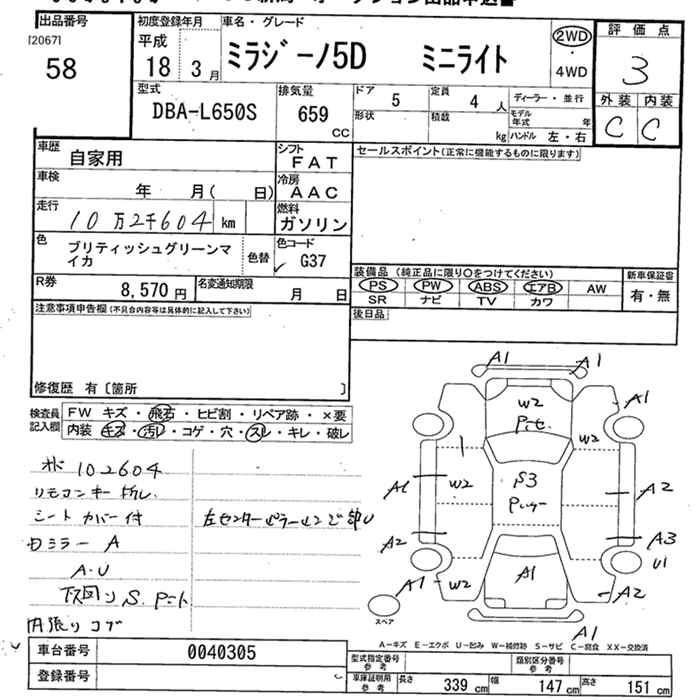 出品番号
[2067]
58
初度登録年月
平成
18 3月
車名・グレード
ミラジーノ5D ミニライト
2WD
・
4WD
評価点
3
外装 内装
C C
型式
DBA-L650S
排気量
659
CC
ドア
5
定員
4 人
形状
積載
kg
ディーラー・並行
モデル年式 年
ハンドル 左・右
車歴
自家用
シフト
FAT
車検
年 月( 日)
冷房
AAC
走行
10万2千604 km
燃料
ガソリン
色
ブリティッシュグリーンマイカ
色替
色コード
G37
R券
8,570 円
名変通知期限
月 日
セールスポイント(正常に機能するものに限ります)
装備品 (純正品に限り○をつけてください)
PS PW ABS エアB AW
SR ナビ TV カワ
新車保証書
有・無
後日品
注意事項申告欄(不具合内容等は具体的に記入して下さい)
修復歴 有〔箇所 〕
検査員記入欄
FW キズ・飛石・ヒビ割・リペア跡・×要
内装 キズ・汚レ・コゲ・穴・スレ・キレ・破レ
102604
リモコンキー
シートカバー付
左センターピラー
ミラー A
A・U
下回り S.
内張り コゲ
A1 A1
W2
A1
W2
1
W2
S3
A1
A2
A2
A3
U1
A1
W2
A1
A2
スペア
A1
A-キズ E-エクボ U-凹み W-補修跡 S-サビ C-腐食 XX-交換済
車台番号
0040305
登録番号
型式指定番号
参考
類別区分番号
参考
車庫証明用
参考
長さ
339 cm
幅
147 cm
高さ
151 cm